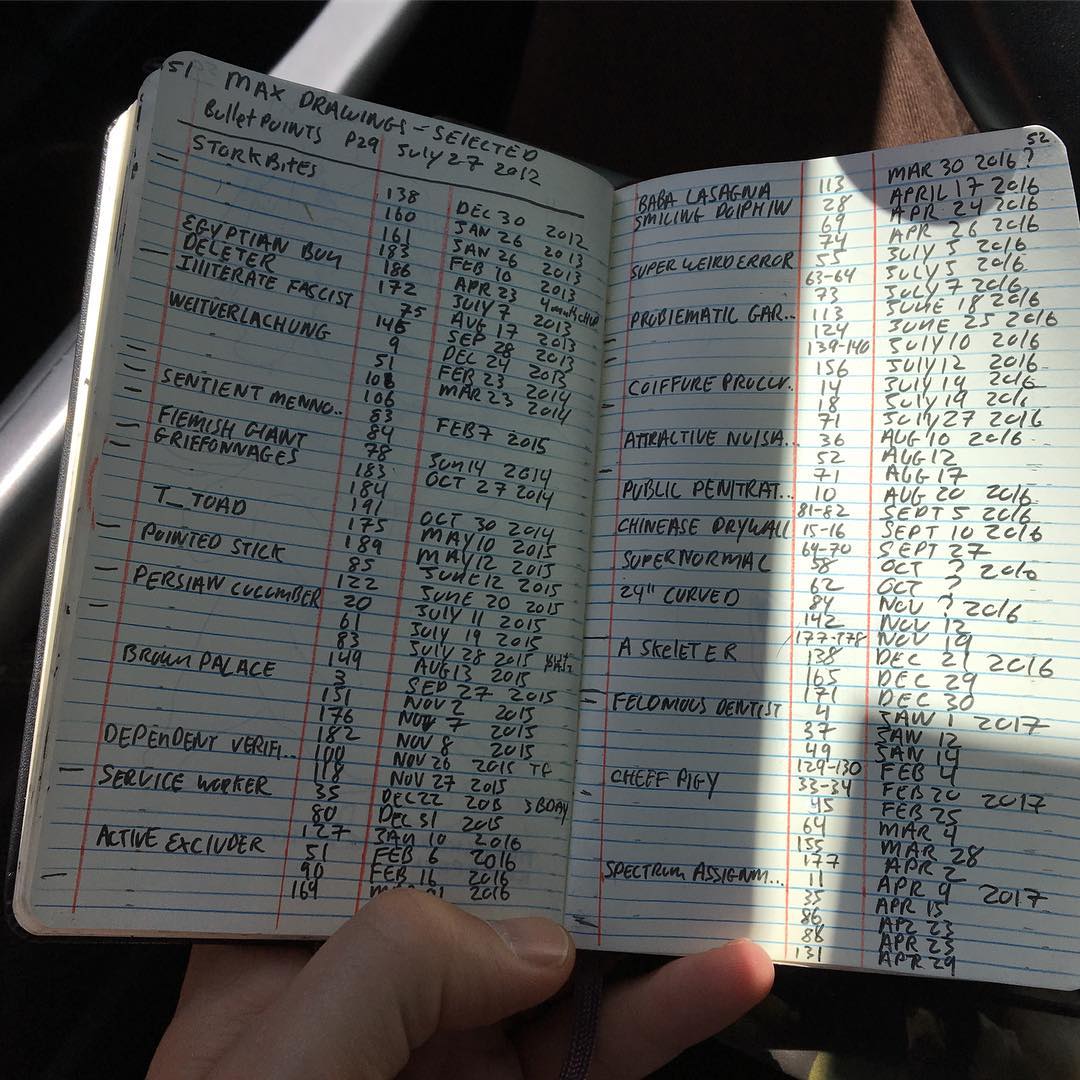 51
MAX DRAWINGS - SELECTED
BULLET POINTS P29 JULY 27 2012
STORKBITES
138 DEC 30 2012
160 JAN 26 2013
161 JAN 26 2013
EGYPTIAN BUM 183 FEB 10 2013
DELETER 186 APR 23
ILLITERATE FASCIST 172 JULY 7 2013
75 AUG 17 2013
WEITVERLACHUNG 146 SEP 28 2013
9 DEC 24 2013
51 FEB 23 2014
106 MAR 23 2014
SENTIENT MENNO.. 106
83 FEB 7 2015
FLEMISH GIANT 84
GRIFFONNAGES 78 JUN 14 2014
183 OCT 27 2014
184
T_TOAD 191 OCT 30 2014
175 MAY 10 2015
POINTED STICK 189 MAY 12 2015
85 JUNE 12 2015
PERSIAN CUCUMBER 122 JUNE 20 2015
20 JULY 11 2015
61 JULY 19 2015
83 JULY 28 2015
BROWN PALACE 149 AUG 13 2015
3 SEP 27 2015
151 NOV 2 2015
176 NOV 7 2015
182 NOV 8 2015
DEPENDENT VERIFI... 100 NOV 26 2015
118 NOV 27 2015
SERVICE WORKER 35 DEC 22 2015 3 BDAY
80 DEC 31 2015
127 JAN 10 2016
ACTIVE EXCLUDER 51 FEB 6 2016
90 FEB 16 2016
169
52
MAR 30 2016?
BABA LASAGNA 113 APRIL 17 2016
SMILING DOLPHIN 28 APR 24 2016
69 APR 26 2016
74 JULY 5 2016
SUPER WEIRD ERROR 55 JULY 5 2016
63-64 JULY 7 2016
73 JUNE 18 2016
PROBLEMATIC GAR... 113 JUNE 25 2016
124 JULY 10 2016
139-140 JULY 12 2016
156 JULY 14 2016
COIFFURE PROCUR.. 14 JULY 19 2016
18 JULY 27 2016
71 AUG 10 2016
ATTRACTIVE NUISA... 36 AUG 12
52 AUG 17
71 AUG 20 2016
PUBLIC PENITRAT... 10 SEPT 5 2016
81-82 SEPT 10 2016
CHINEASE DRYWALL 15-16 SEPT 27
64-70 OCT ? 2016
SUPERNORMAL 58 OCT ?
62 NOV ? 2016
24" CURVED 84 NOV 12
142 NOV 19
177-178 DEC 21 2016
A SKELETER 138 DEC 29
165 DEC 30
171 JAN 1 2017
FELONIOUS DENTIST 4 JAN 12
37 JAN 14
49 FEB 4
129-130 FEB 20 2017
CHEFF PIGY 33-34 FEB 25
45 MAR 4
64 MAR 28
155 APR 2
177 APR 9 2017
SPECTRUM ASSIGNM... 11 APR 15
35 APR 23
86 APR 23
88 APR 29
131